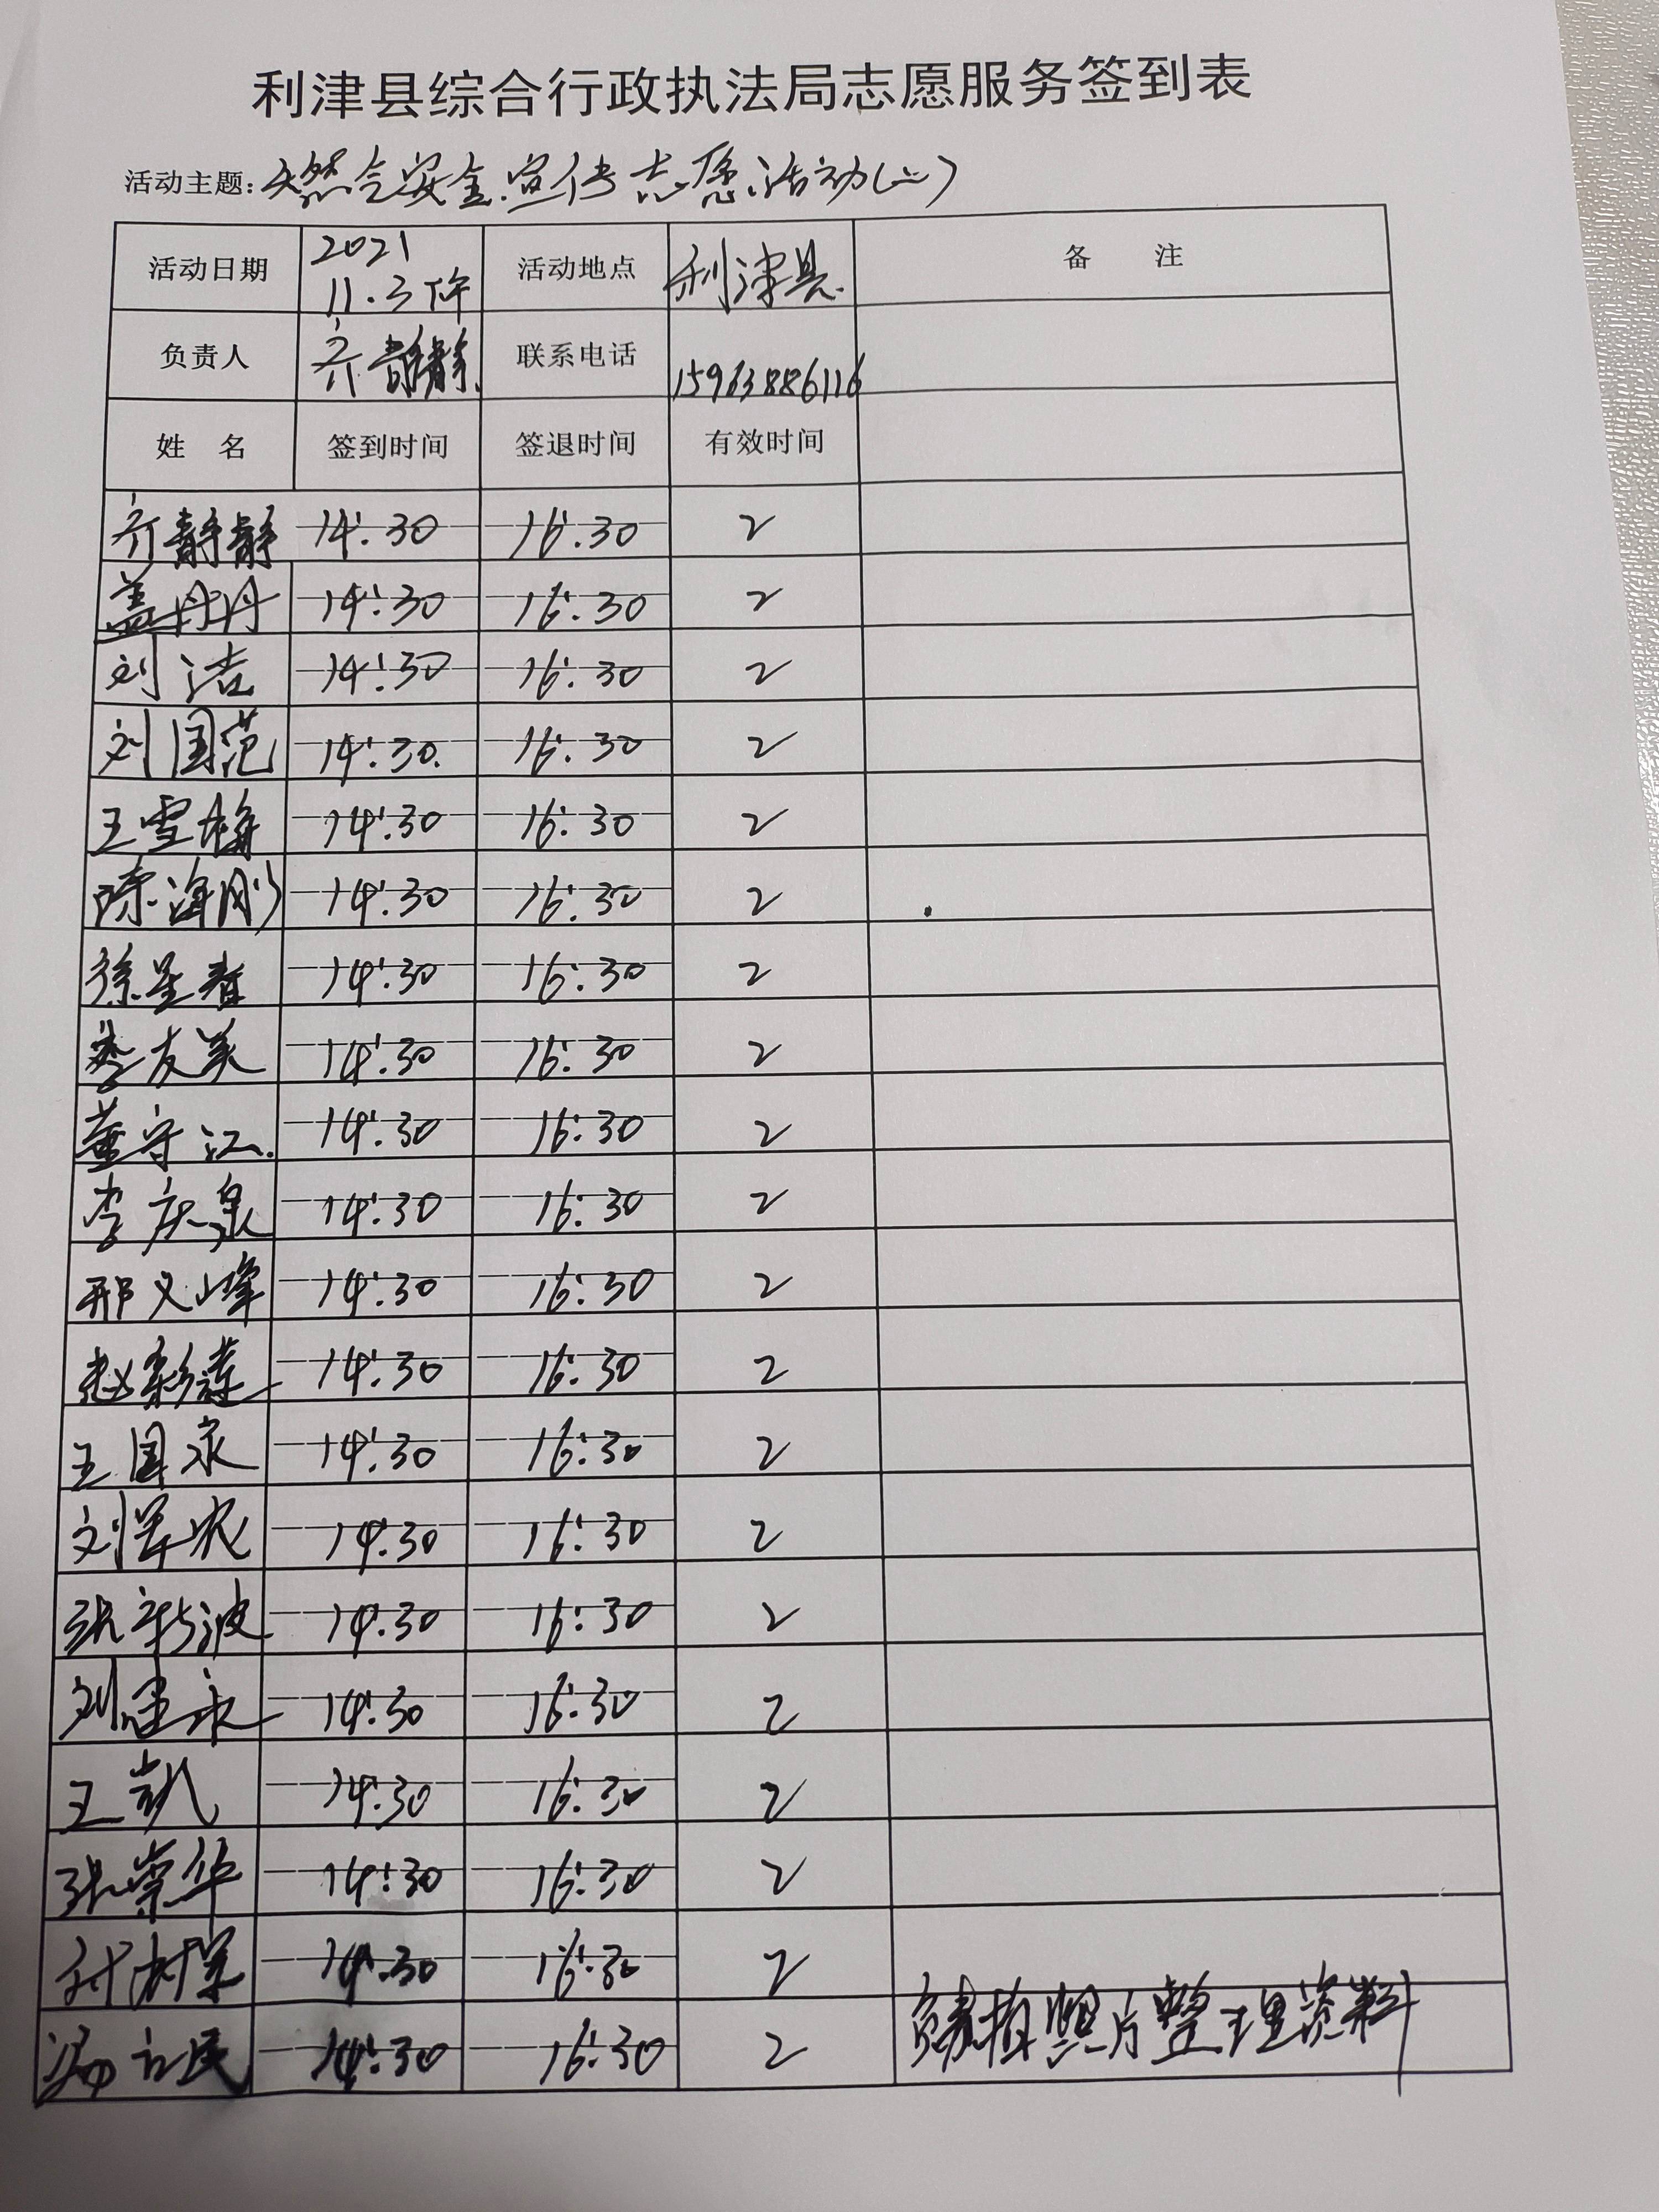 利津县综合行政执法局志愿服务签到表
活动主题:天然气安全宣传志愿活动(二)
活动日期 2021 11.3下午 活动地点 利津县 备 注
负责人 齐静静 联系电话 15963886116
姓 名 签到时间 签退时间 有效时间
齐静静 14:30 16:30 2
盖丹丹 14:30 16:30 2
刘洁 14:30 16:30 2
刘国范 14:30 16:30 2
王雪梅 14:30 16:30 2
陈海刚 14:30 16:30 2
徐星春 14:30 16:30 2
李友美 14:30 16:30 2
董守江 14:30 16:30 2
李庆泉 14:30 16:30 2
邢义峰 14:30 16:30 2
赵彩莲 14:30 16:30 2
王国永 14:30 16:30 2
刘军 14:30 16:30 2
张新波 14:30 16:30 2
刘建永 14:30 16:30 2
王凯 14:30 16:30 2
张荣华 14:30 16:30 2
14:30 16:30 2
民 14:30 16:30 2 负责拍照片整理资料